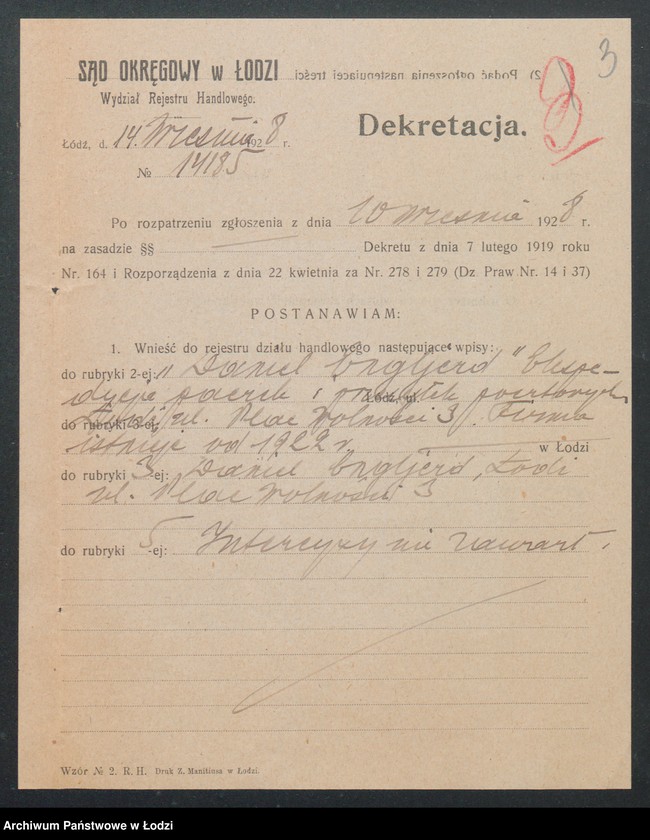 3
SĄD OKRĘGOWY w ŁODZI
2) Podać ogłoszenia następującej treści
Wydział Rejestru Handlowego.
Łódź, d. 14. Wrześnía 1928 r.
Dekretacja.
№ 14185
Po rozpatrzeniu zgłoszenia z dnia 10 Września 1928 r.
na zasadzie §§ — Dekretu z dnia 7 lutego 1919 roku
Nr. 164 i Rozporządzenia z dnia 22 kwietnia za Nr. 278 i 279 (Dz. Praw Nr. 14 i 37)
POSTANAWIAM:
1. Wnieść do rejestru działu handlowego następujące wpisy:
do rubryki 2-ej: „Daniel Engljerd" Ekspe-
dycja paczek i przesyłek pocztowych,
Łódź, ul.
do rubryki 3-ej: Łódź, ul. Plac Wolności 3. Firma
istnieje od 1922 r.
w Łodzi
do rubryki 3-ej: Daniel Engljerd, Łódź
ul. Plac Wolności 3
do rubryki 5-ej: Intercyzy nie zawarł.
Wzór № 2. R. H. Druk Z. Manitiusa w Łodzi.
Archiwum Państwowe w Łodzi